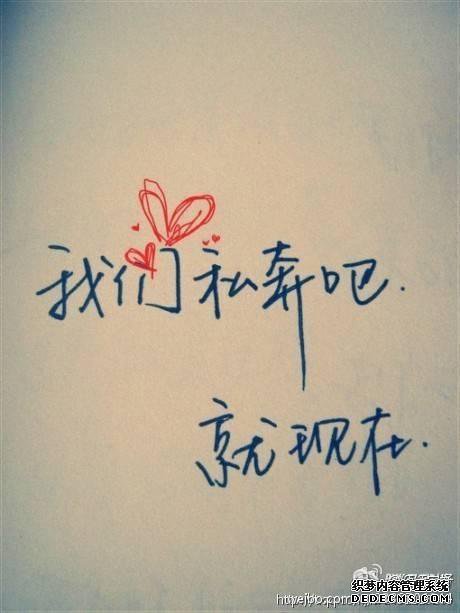 我们私奔吧.
就现在.
织梦内容管理系统
DEDECMS.COM